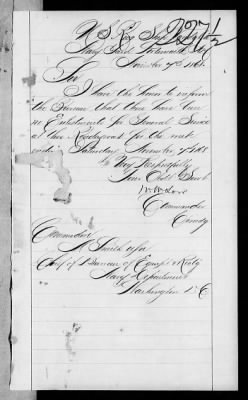 227 1/2
U.S. Rcg Ship
Navy Yard Portsmouth
November 7th 1868.
Sir
I Have the honor to inform
the Bureau that there have been
no Enlistments for General Service
at this Rendezvous for the week
ending Saturday November 7th 1868
Very Respectfully
Your Obdt Servt
Commander
Comdg
Commodore
M Smith USN
Chf of Bureau of Equipt & Rctg
Navy Department
Washington D.C.